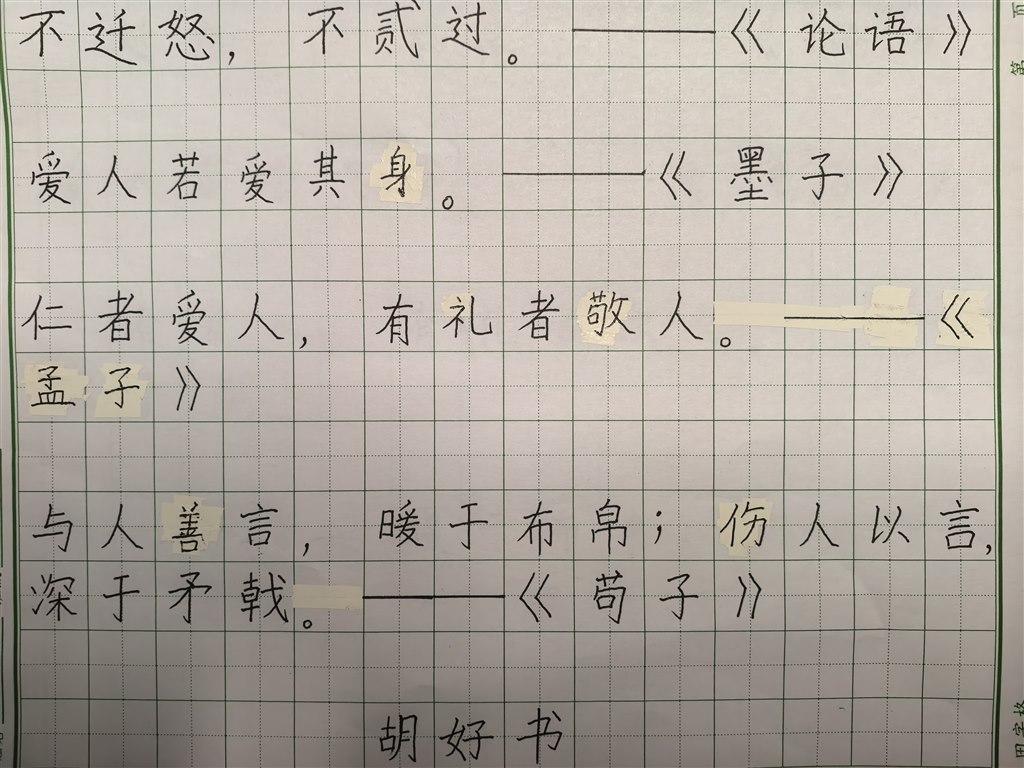 不迁怒，不贰过。——《论语》
爱人若爱其身。——《墨子》
仁者爱人，有礼者敬人。——《
孟子》
与人善言，暖于布帛；伤人以言，
深于矛戟。——《荀子》
胡好书
第 页
田字格